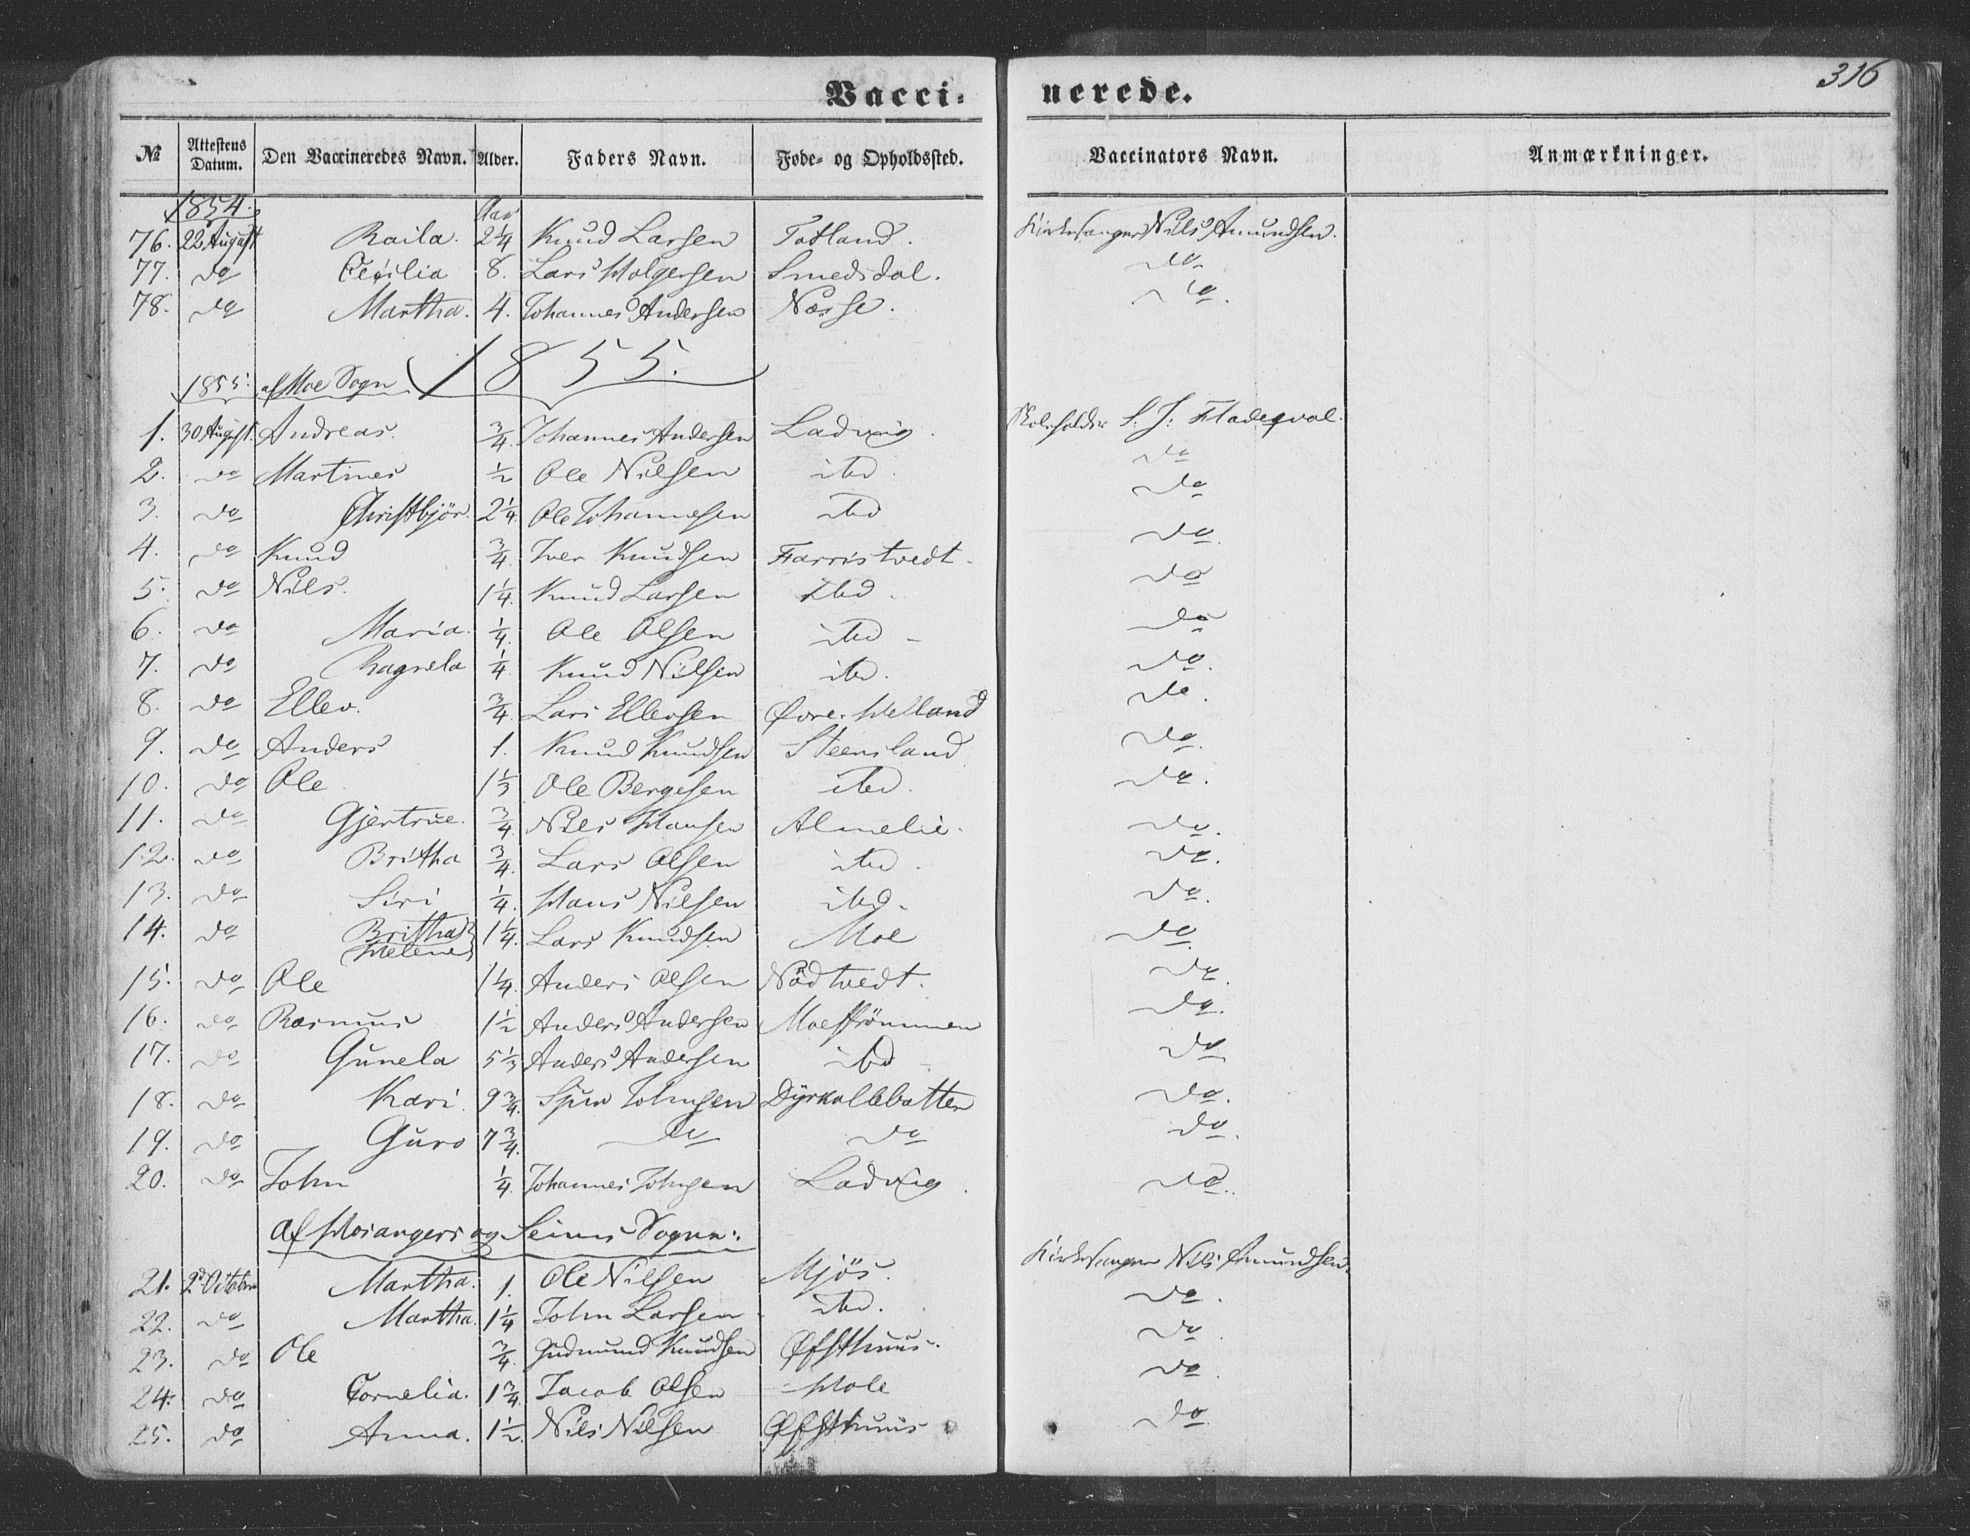 316
Vacci- nerede.
№ Attestens Datum. Den Vaccineredes Navn. Alder. Faders Navn. Føde- og Opholdssted. Vaccinators Navn. Anmærkninger.
1854. Aar
76. 22 August Raila. 2 1/4 Knud Larsen Totland. Kirkesanger Niels Amundsen.
77. do Cecilia 8. Lars Holgersen Smedsdal. do
78. do Martha. 4. Johannes Andersen Næsse. do.
1855.
1855. af Moe Sogn
1. 30 August. Andreas. 3/4. Johannes Andersen Ladvig. Skoleholder S. J. Fladeqval.
2. do Martines 1/2 Ole Nilsen ibd. do
3. do Christbjør. 2 1/4. Ole Johannesen ibd do
4. do Knud 3/4. Iver Knudsen Farristvedt. do.
5. do Nils. 1 1/4. Knud Larsen Ibd. do
6. do Maria. 1/4. Ole Olsen ibd do
7. do Ragnela 1/4 Knud Nilsen ibd. do.
8. do Ellev. 3/4. Lars Ellevsen Øvre. Helland do.
9. do Anders 1. Knud Knudsen Steensland do.
10. do Ole 1 1/3 Ole Bergesen ibd. do.
11. do Gjertrue. 3/4 Nils Hansen Almelie. do.
12. do Britha 3/4. Lars Olsen ibd. do.
13. do Siri 1/4. Hans Nilsen ibd. do.
14. do Britha Helene 1 1/4. Lars Knudsen Moe do.
15. do Ole 1 1/4. Anders Olsen Nødtvedt. do.
16. do Rasmus 1 1/2 Anders Andersen Moestrømmen do.
17. do Gunela 5 1/3 Anders Andersen ibd do
18. do Kari. 9 3/4. Sjur Johnsen Dyrkolbotten do.
19. do Guro 7 3/4. do do do.
20. do John 1/4. Johannes Johnsen Ladvig. do.
Af Hosangers og Seims Sogne:
21. 2d October Martha. 1. Ole Nilsen Mjøs. Kirkesanger Nils Amundsen.
22. do Martha. 1 1/4 John Larsen ibd. do.
23. do Ole 3/4. Gudmund Knudsen Øfsthuus. do.
24. do Cornelia. 1 3/4. Jacob Olsen Hole do
25. do Anna. 1 1/2. Nils Nilsen Øfsthuus do.